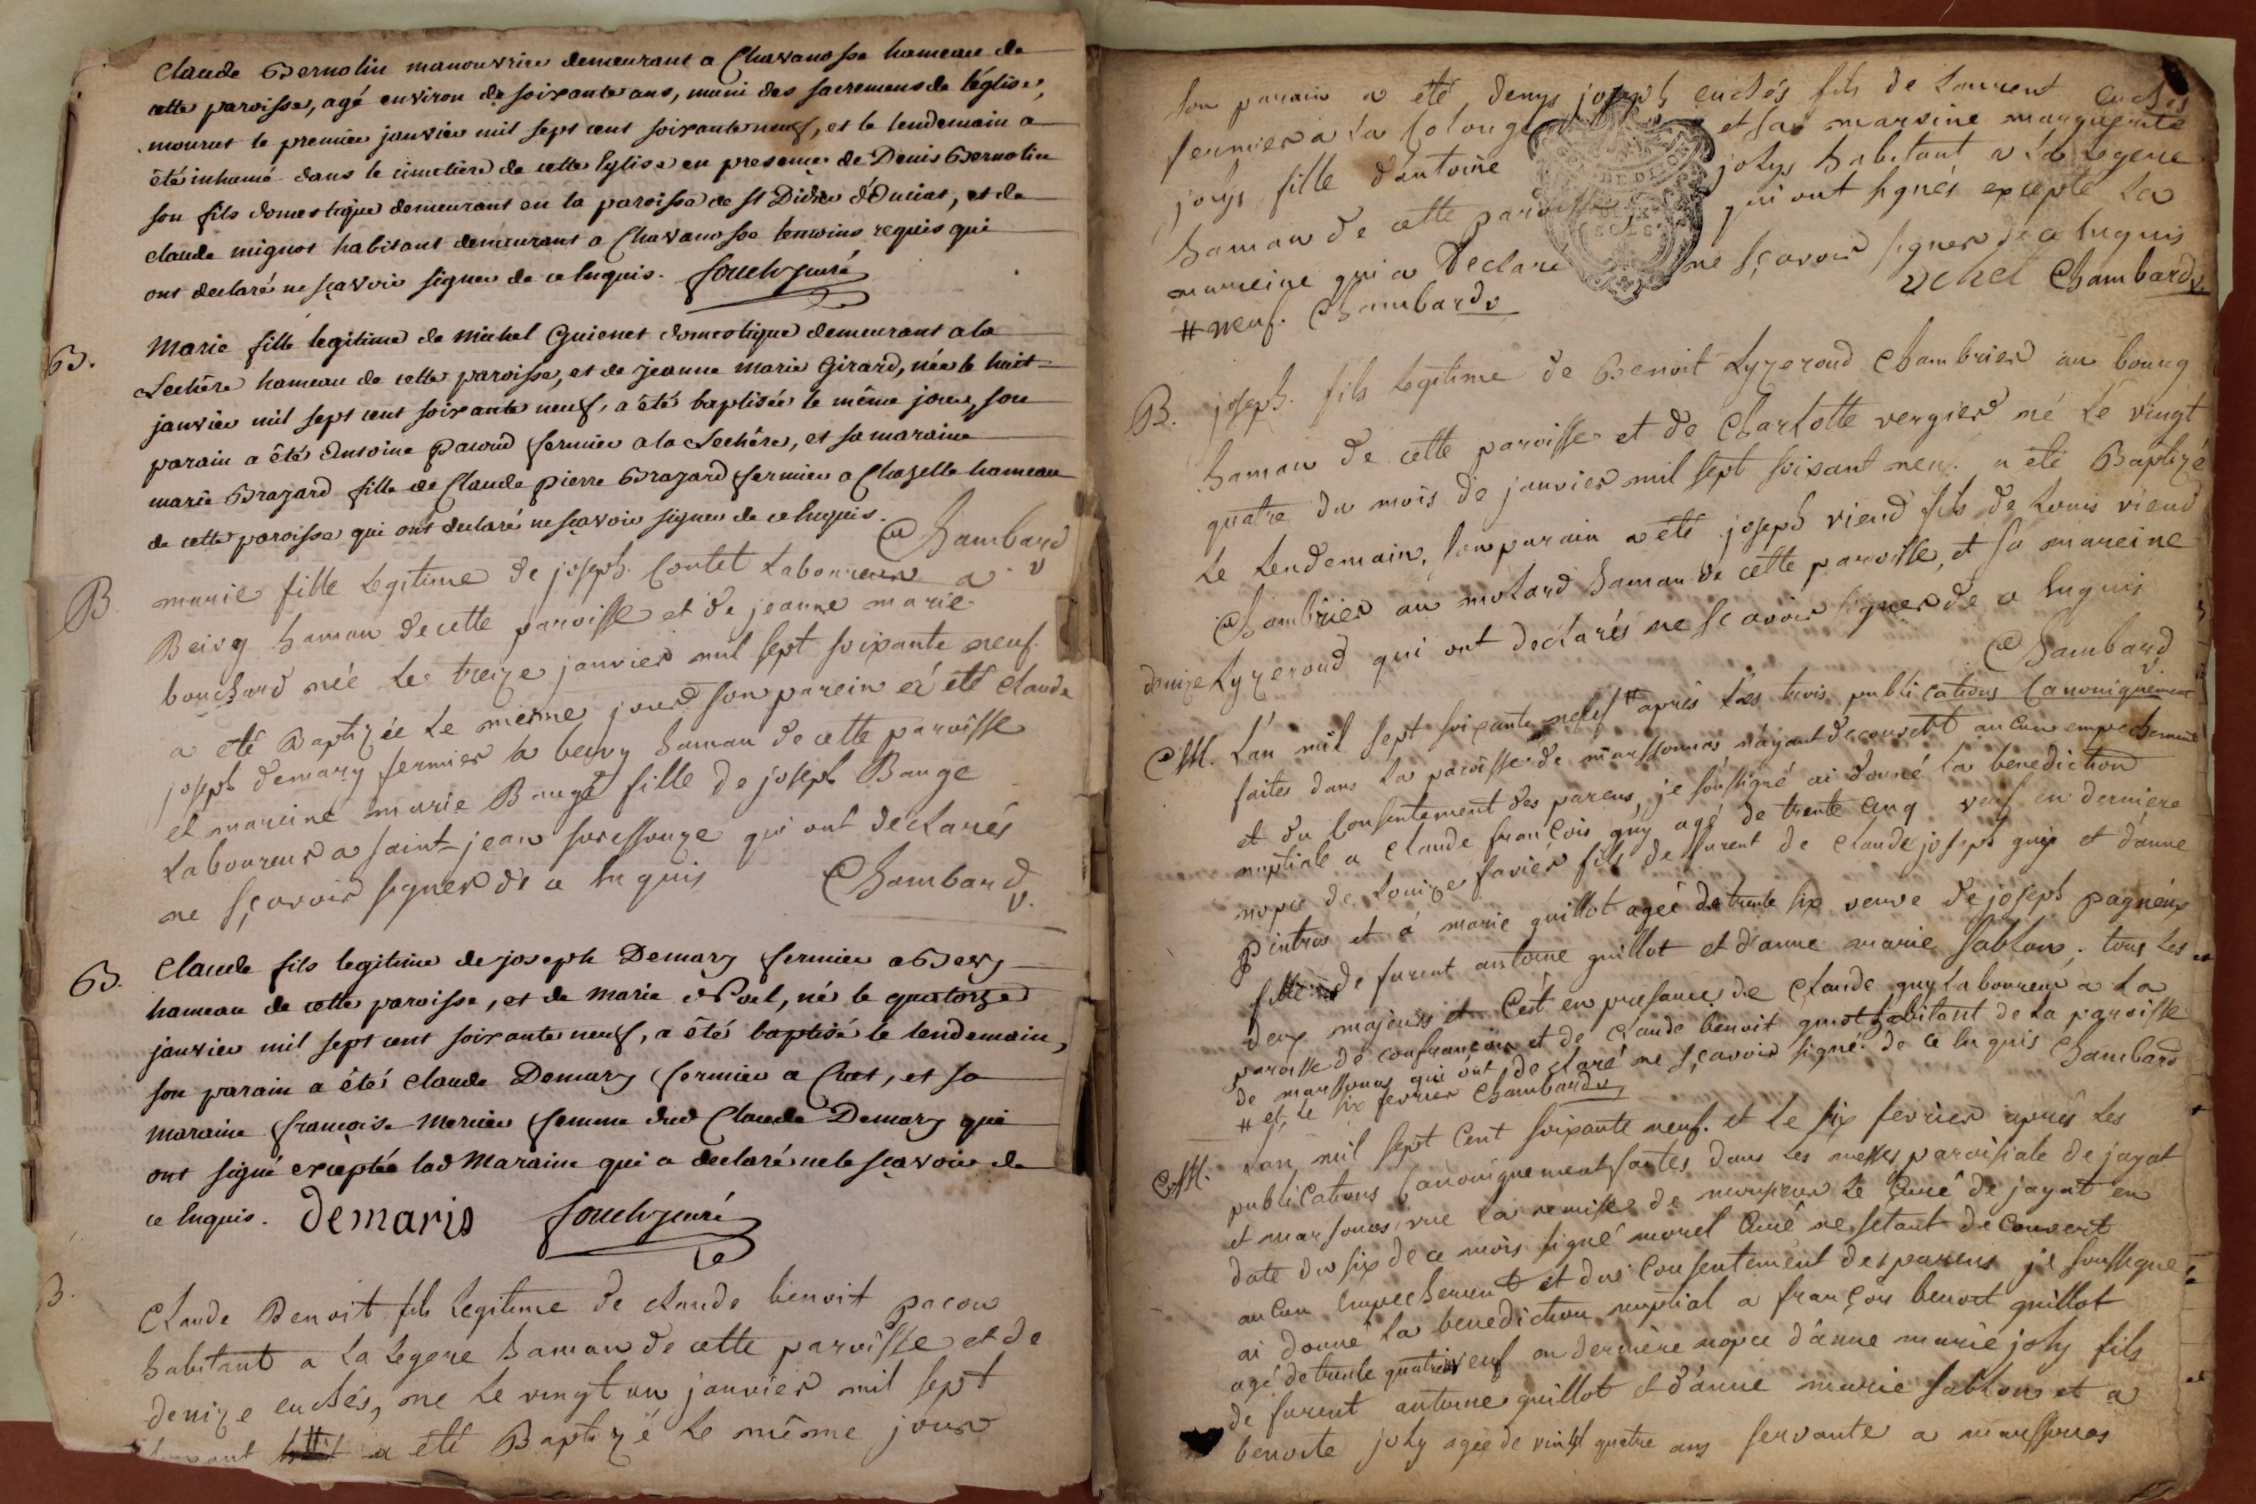 Claude Bernolin manouvrier demeurant a Chavanosse hameau de
cette paroisse, agé environ de soixante ans, muni des sacremens de l'église,
mourut le premier janvier mil sept cent soixante neuf, et le lendemain a
été inhumé dans le cimetiere de cette Eglise en presence de Denis Bernolin
son fils domestique demeurant en la paroisse de st Didier d'Oucias, et de
claude mignot habitant demeurant a Chavanosse temoins requis qui
ont declaré ne sçavoir signer de ce Enquis.
B. Marie fille legitime de Michel Guionet domestique demeurant a la
Lechère hameau de cette paroisse, et de jeanne marie Girard, née le huit
janvier mil sept cent soixante neuf, a été baptisée le même jour, son
parain a été Antoine pacoud fermier a la Lechère, et sa maraine
marie Brazard fille de Claude pierre Brazard fermier a Chazelle hameau
de cette paroisse qui ont declaré ne sçavoir signer de ce Enquis.
Chambard v
B marie fille Legitime de joseph Contet Laboureur a
Beivy hamau de cette paroisse et de jeanne marie
bouchard née Le treize janvier mil sept soixante neuf.
a eté Baptizée Le meme jour son parein a eté claude
joseph demary fermier a beivy hamau de cette paroisse
et mareine marie Baugé fille de joseph Bauge
Laboureur a saint jean suressouze qui ont declarés
ne sçavoir signer de ce Enquis Chambard v.
B. Claude fils legitime de joseph Demary fermier a Bevy
hameau de cette paroisse, et de Marie Noel, né le quatorze
janvier mil sept cent soixante neuf, a été baptisé le lendemain,
son parain a été claude Demary fermier a Crat, et sa
maraine françoise Mercier femme dud Claude Demary qui
ont signé exceptée lad Maraine qui a declaré ne le sçavoir de
ce Enquis. demaris
B. Claude Benoit fils Legitime de claude benoit pacou
habitant a La Legere hamau de cette paroisse et de
denize euchés, ne Le vingt un janvier mil sept
a été Baptizé Le même jour
son parain a été denys joseph euchés fils de Laurent euchés
fermier a La et sa mareine marguerite
jolys fille d'antoine jolys habitant a La Legere
hamau de cette paroisse qui ont signés excepte La
mareine qui a Declaré ne sçavoir signer de ce Enquis
# neuf. Chambard v Chambard v
B. joseph. fils Legitime de Benoit Lyzeroud Chambrier au bourg
hamau de cette paroisse et de Charlotte vergier né Le vingt
quatre du mois de janvier mil sept soixant neuf a été Baptizé
Le Lendemain, son parain a été joseph viend fils de Louis viend
Chambrier au molard hamau de cette paroisse, et sa mareine
denize Lyzeroud qui ont declarés ne scavoir signer de ce Enquis
Chambard v
M. L'an mil sept soixante neuf # après Les trois publications Canoniquement
faites dans La paroisse de marssonnas n'ayant decouvert aucun empechement
et du Consentement des parens, je soussigné ai donné La benediction
nuptiale a claude françois guy agé de trente cinq veuf en derniere
nopce de Louize favier fils de furent de claude joseph guy et d'anne
pintros et a marie guillot agée de trente six veuve de joseph pagneux
fille de furent antoine guillot et d'anne marie sablon, tous Les
deux majeurs et C'est en presance de claude guy Laboureur a La
paroisse de confrançon et de claude benoit guiot habitant de La paroisse
de marssonnas qui ont declaré ne sçavoir signé de ce Enquis Chambard
# et Le six fevrier Chambard v
M. L'an mil sept Cent soixante neuf. et Le six fevrier après Les
publications Canoniquement faites dans Les messes paroisiale de jayat
et marsonas, vue La remise de monsieur Le Curé de jayat en
date du six de ce mois signé morel Curé ne setant decouvert
aucun Empechement et du Consentement des parens je soussigné
ai donné La benediction nuptial a françois benoit guillot
agé de trente quatre veuf en derniere nopce d'anne marie joly fils
de furent antoine guillot et d'anne marie sablon et a
benoite joly agée de vingt quatre ans servante a marssonas